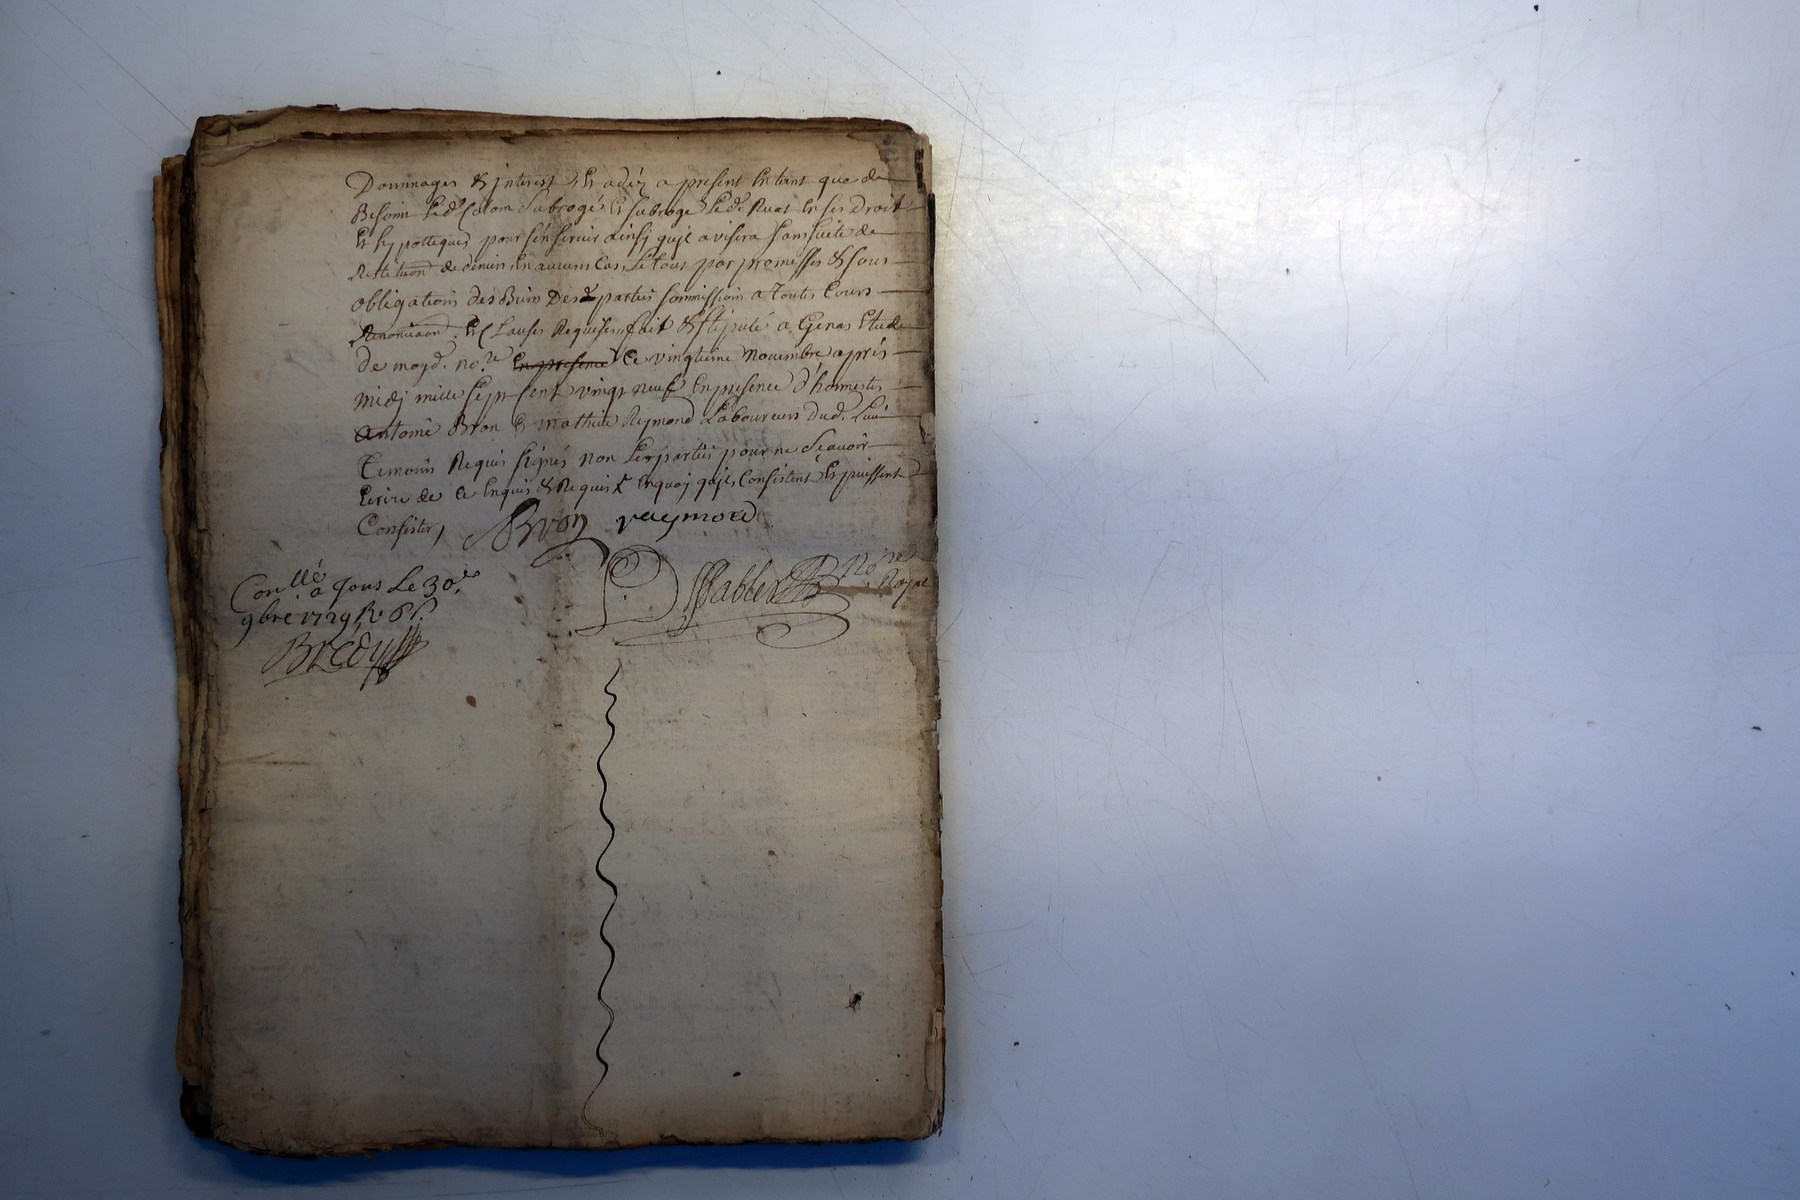 Dommages & jnterest, Et adéz a present Entant que de
Besoint Led.t Colom Subrogé Et subroge Led.t Ruat En ses Droit
Et hypotteques pour s'en servir ainsÿ qujl avisera sans suite de
Restitu͠on de deniers En aucuns Cas, Le tout par promesses & sous
obligations des Biens Desd parties sommissions a Toutes Cours
Renonciaon. Et Clauses Requises, fait & stipulé a Genas Etude
de moyd. no.re En presence Ce vingtieme Novembre après
midj mille sept cent vingt neuf En presence d'honnestes
Antoine Bron Et mathieu Reymond Laboureurs dud. Lieu
Temoins Requis signés non Les parties pour ne Sçavoir
Ecrire de Ce Enquis & Requis & Enquoj qujls Consistent Et puissent
Consister,
Bron raymond
Con.llé a Jons Le 30.e
9bre 1729 R. 6 s.
Bredy
No.re Royal